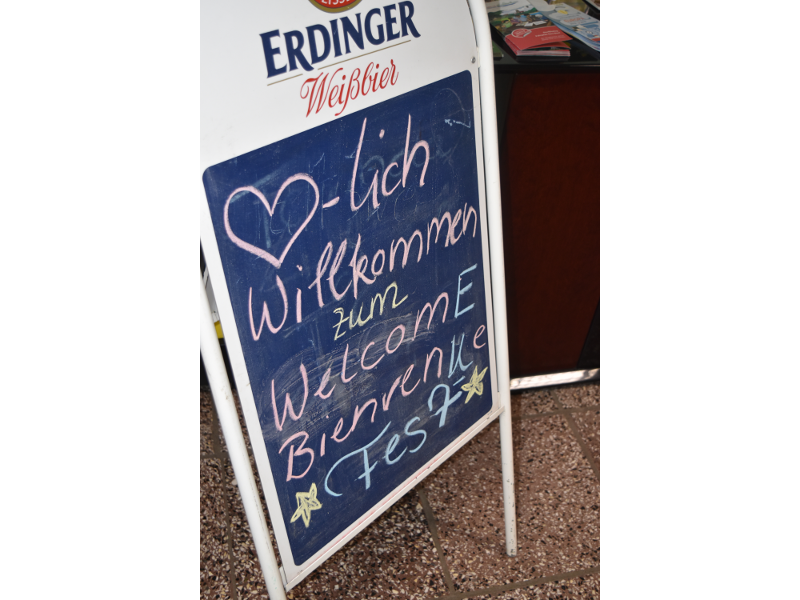 ERDINGER
Weißbier
♡-lich
Willkommen
zum
WelcomE
Bienvenue
FesT